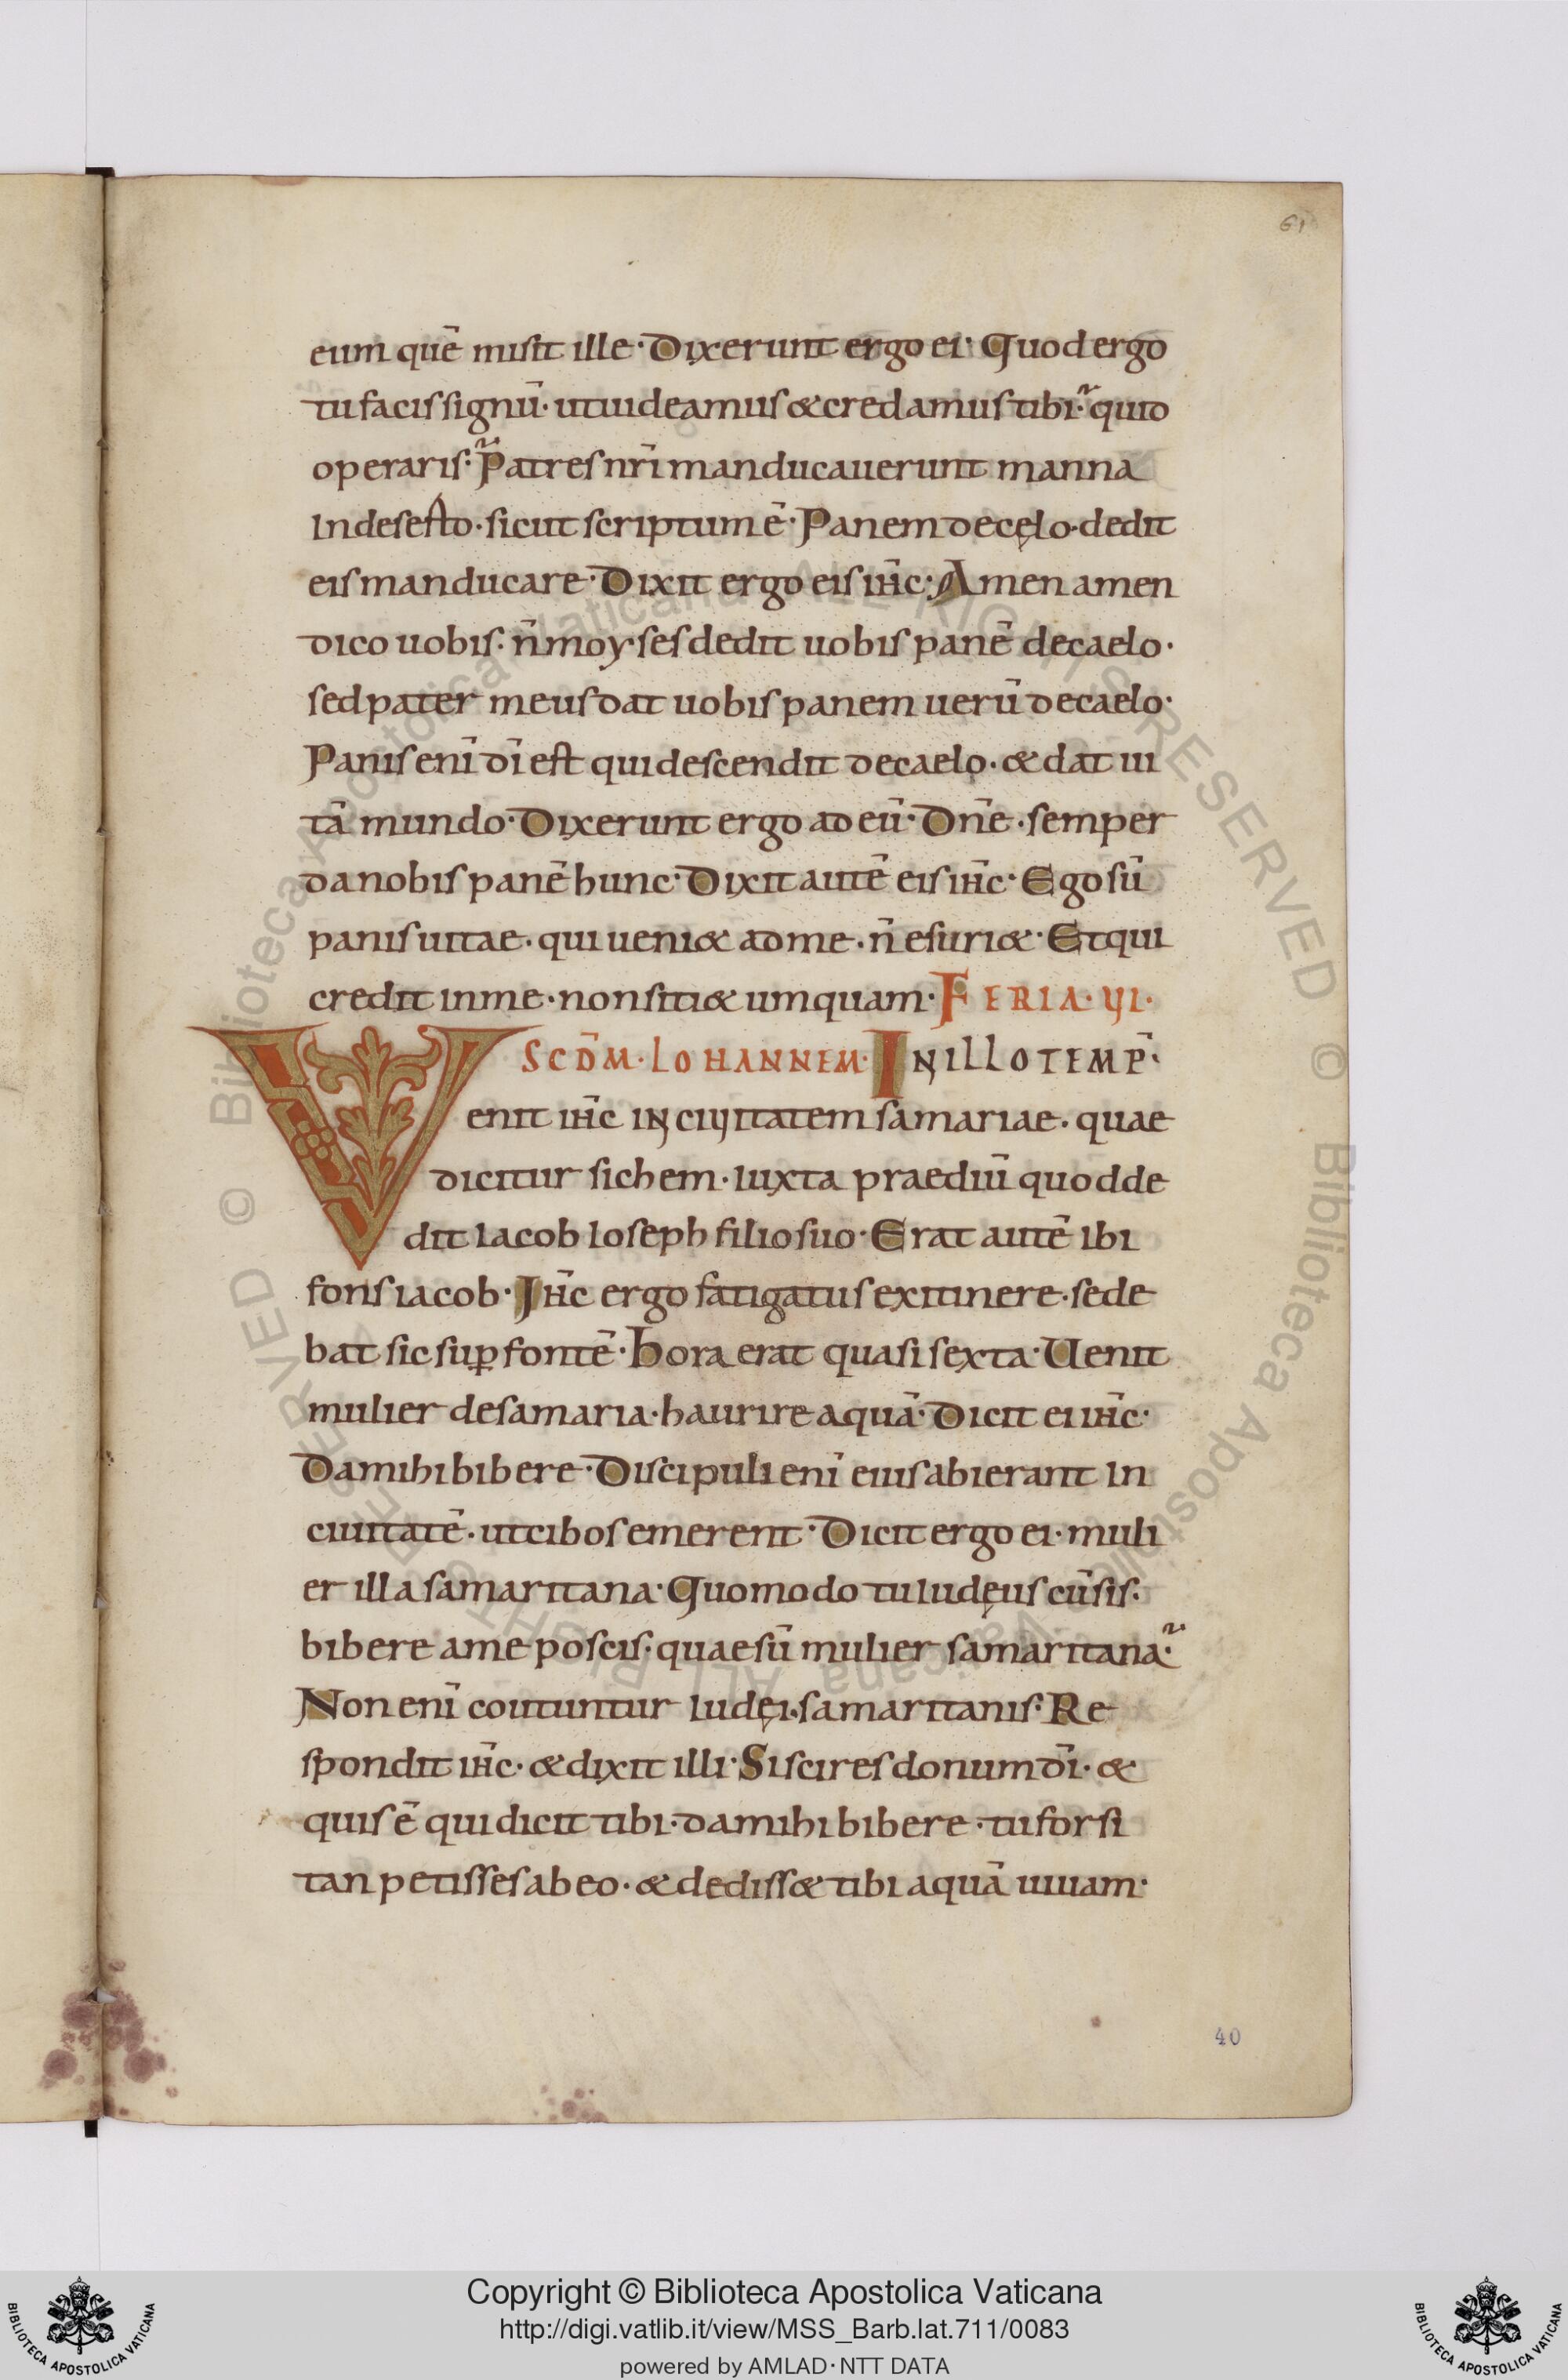 61
eum quē misit ille· Dixerunt ergo ei· Quod ergo
tu facis signū· ut uideamus & credamus tibi· quid
operaris· Patres nr̄i manducauerunt manna
In deserto· sicut scriptum ē· Panem de cęlo· dedit
eis manducare· Dixit ergo eis ih̄c· Amen amen
dico uobis· n̄ moyses dedit uobis panē de caelo·
sed pater meus dat uobis panem uerū de caelo·
Panis enī dī est qui descendit de caelo· & dat ui
tā mundo· Dixerunt ergo ad eū· Dn̄e· semper
da nobis panē hunc· Dixit autē eis ih̄c· Ego sū
panis uitae· qui ueni& ad me· n̄ esuri&· Et qui
credit in me· non siti& umquam· FERIA· VI·
SCD̄M· IOHANNEM· IN ILLO TEMP̄·
Venit ih̄c in ciuitatem samariae· quae
dicitur sichem· iuxta praediū quod de
dit Iacob Ioseph filio suo· Erat autē ibi
fons iacob· Ih̄c ergo fatigatus ex itinere· sede
bat sic sup̱ fontē· hora erat quasi sexta· Uenit
mulier de samaria· haurire aquā· Dicit ei ih̄c·
Da mihi bibere· Discipuli enī eius abierant in
ciuitatē· ut cibos emerent· Dicit ergo ei· muli
er illa samaritana· Quomodo tu Iudęus cū sis·
bibere a me poscis· quae sū mulier samaritana·
Non enī coutuntur Iudęi· samaritanis· Re
spondit ih̄c· & dixit illi· Si scires donum dī· &
quis ē qui dicit tibi· da mihi bibere· tu forsi
tan petisses ab eo· & dediss& tibi aquā uiuam·
40
Copyright © Biblioteca Apostolica Vaticana
http://digi.vatlib.it/view/MSS_Barb.lat.711/0083
powered by AMLAD·NTT DATA
BIBLIOTECA APOSTOLICA VATICANA
BIBLIOTECA APOSTOLICA VATICANA